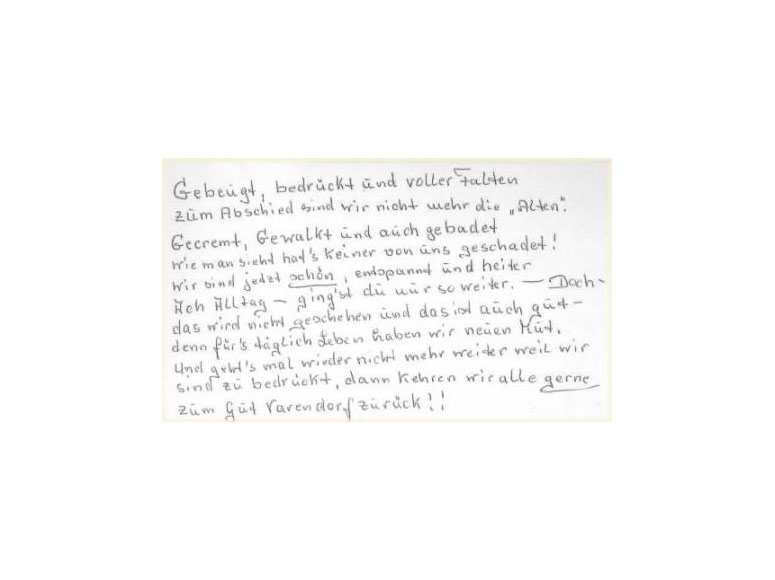 Gebeugt, bedrückt und voller Falten
zum Abschied sind wir nicht mehr die „Alten".
Gecremt, Gewalkt und auch gebadet
wie man sieht hat's keiner von uns geschadet!
wir sind jetzt schön, entspannt und heiter
Ach Alltag – ging'st du nur so weiter. — Doch –
das wird nicht geschehen und das ist auch gut –
denn für's täglich Leben haben wir neuen Mut.
Und geht's mal wieder nicht mehr weiter weil wir
sind zu bedrückt, dann kehren wir alle gerne
zum Gut Varendorf zurück!!